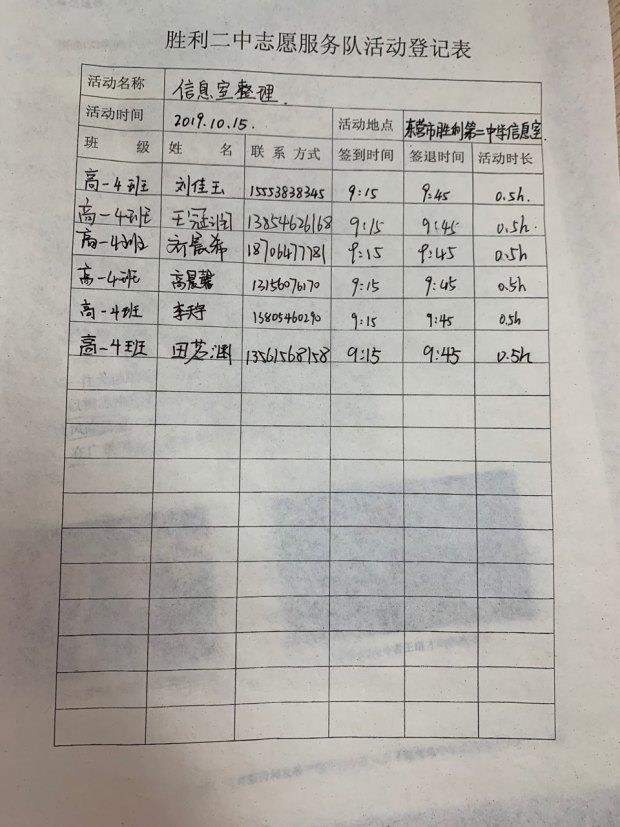 胜利二中志愿服务队活动登记表
活动名称 信息室整理.
活动时间 2019.10.15. 活动地点 东营市胜利第二中学信息室.
班 级 姓 名 联 系 方式 签到时间 签退时间 活动时长
高一4班 刘佳玉 15553838345 9:15 9:45 0.5h.
高一4班 王冠 13854626168 9:15 9:45 0.5h.
高一4班 晨希 18706477781 9:15 9:45 0.5h
高一4班 高晨馨 13156076170 9:15 9:45 0.5h
高一4班 李 13805460290 9:15 9:45 0.5h
高一4班 田茗渊 13561568158 9:15 9:45 0.5h